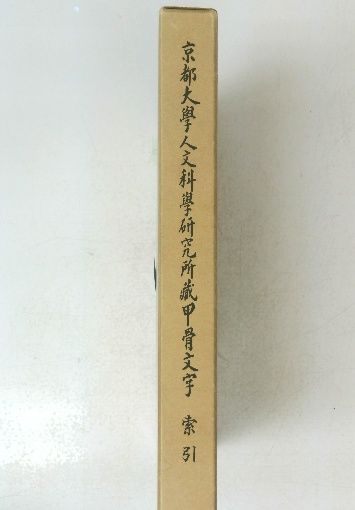 京都大學人文科學研究所藏甲骨文字 索引